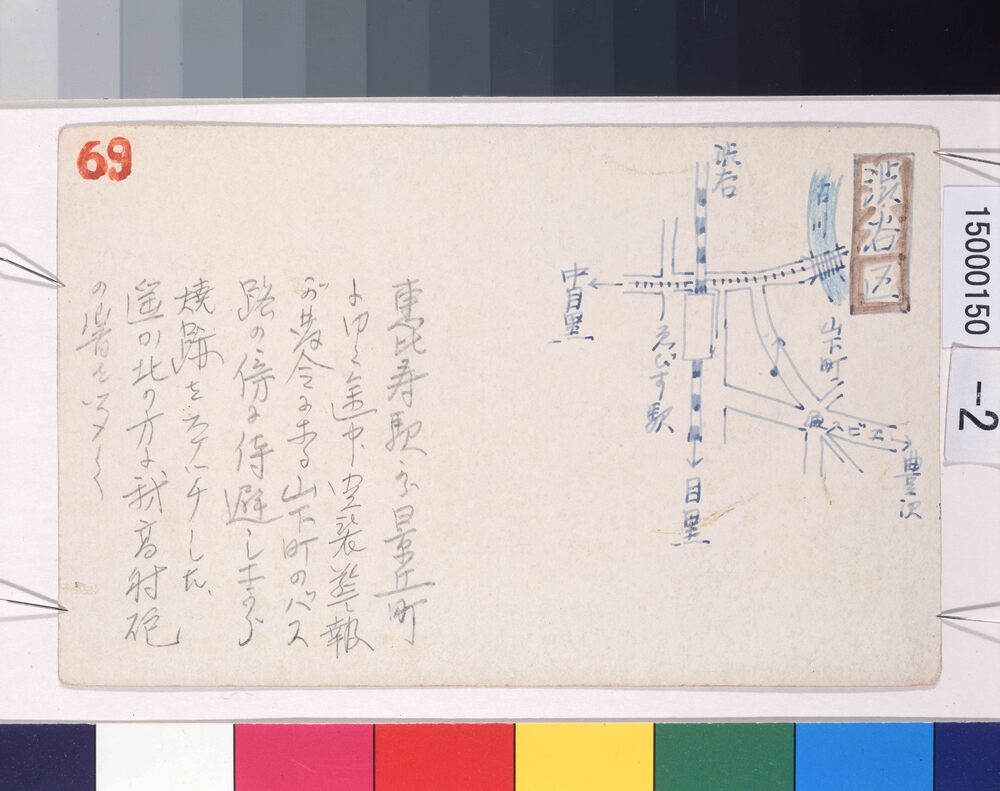 渋谷区
古川
渋谷
中目黒
ゑびす駅
山下町
ヱビス
豊沢
目黒
恵比寿駅から景丘町
にゆく途中、空襲警報
が発令になる 山下町のバス
路の傍に待避しながら
焼跡をスケッチした、
遥か北の方に我高射砲
の響きを
69
15000150
-2